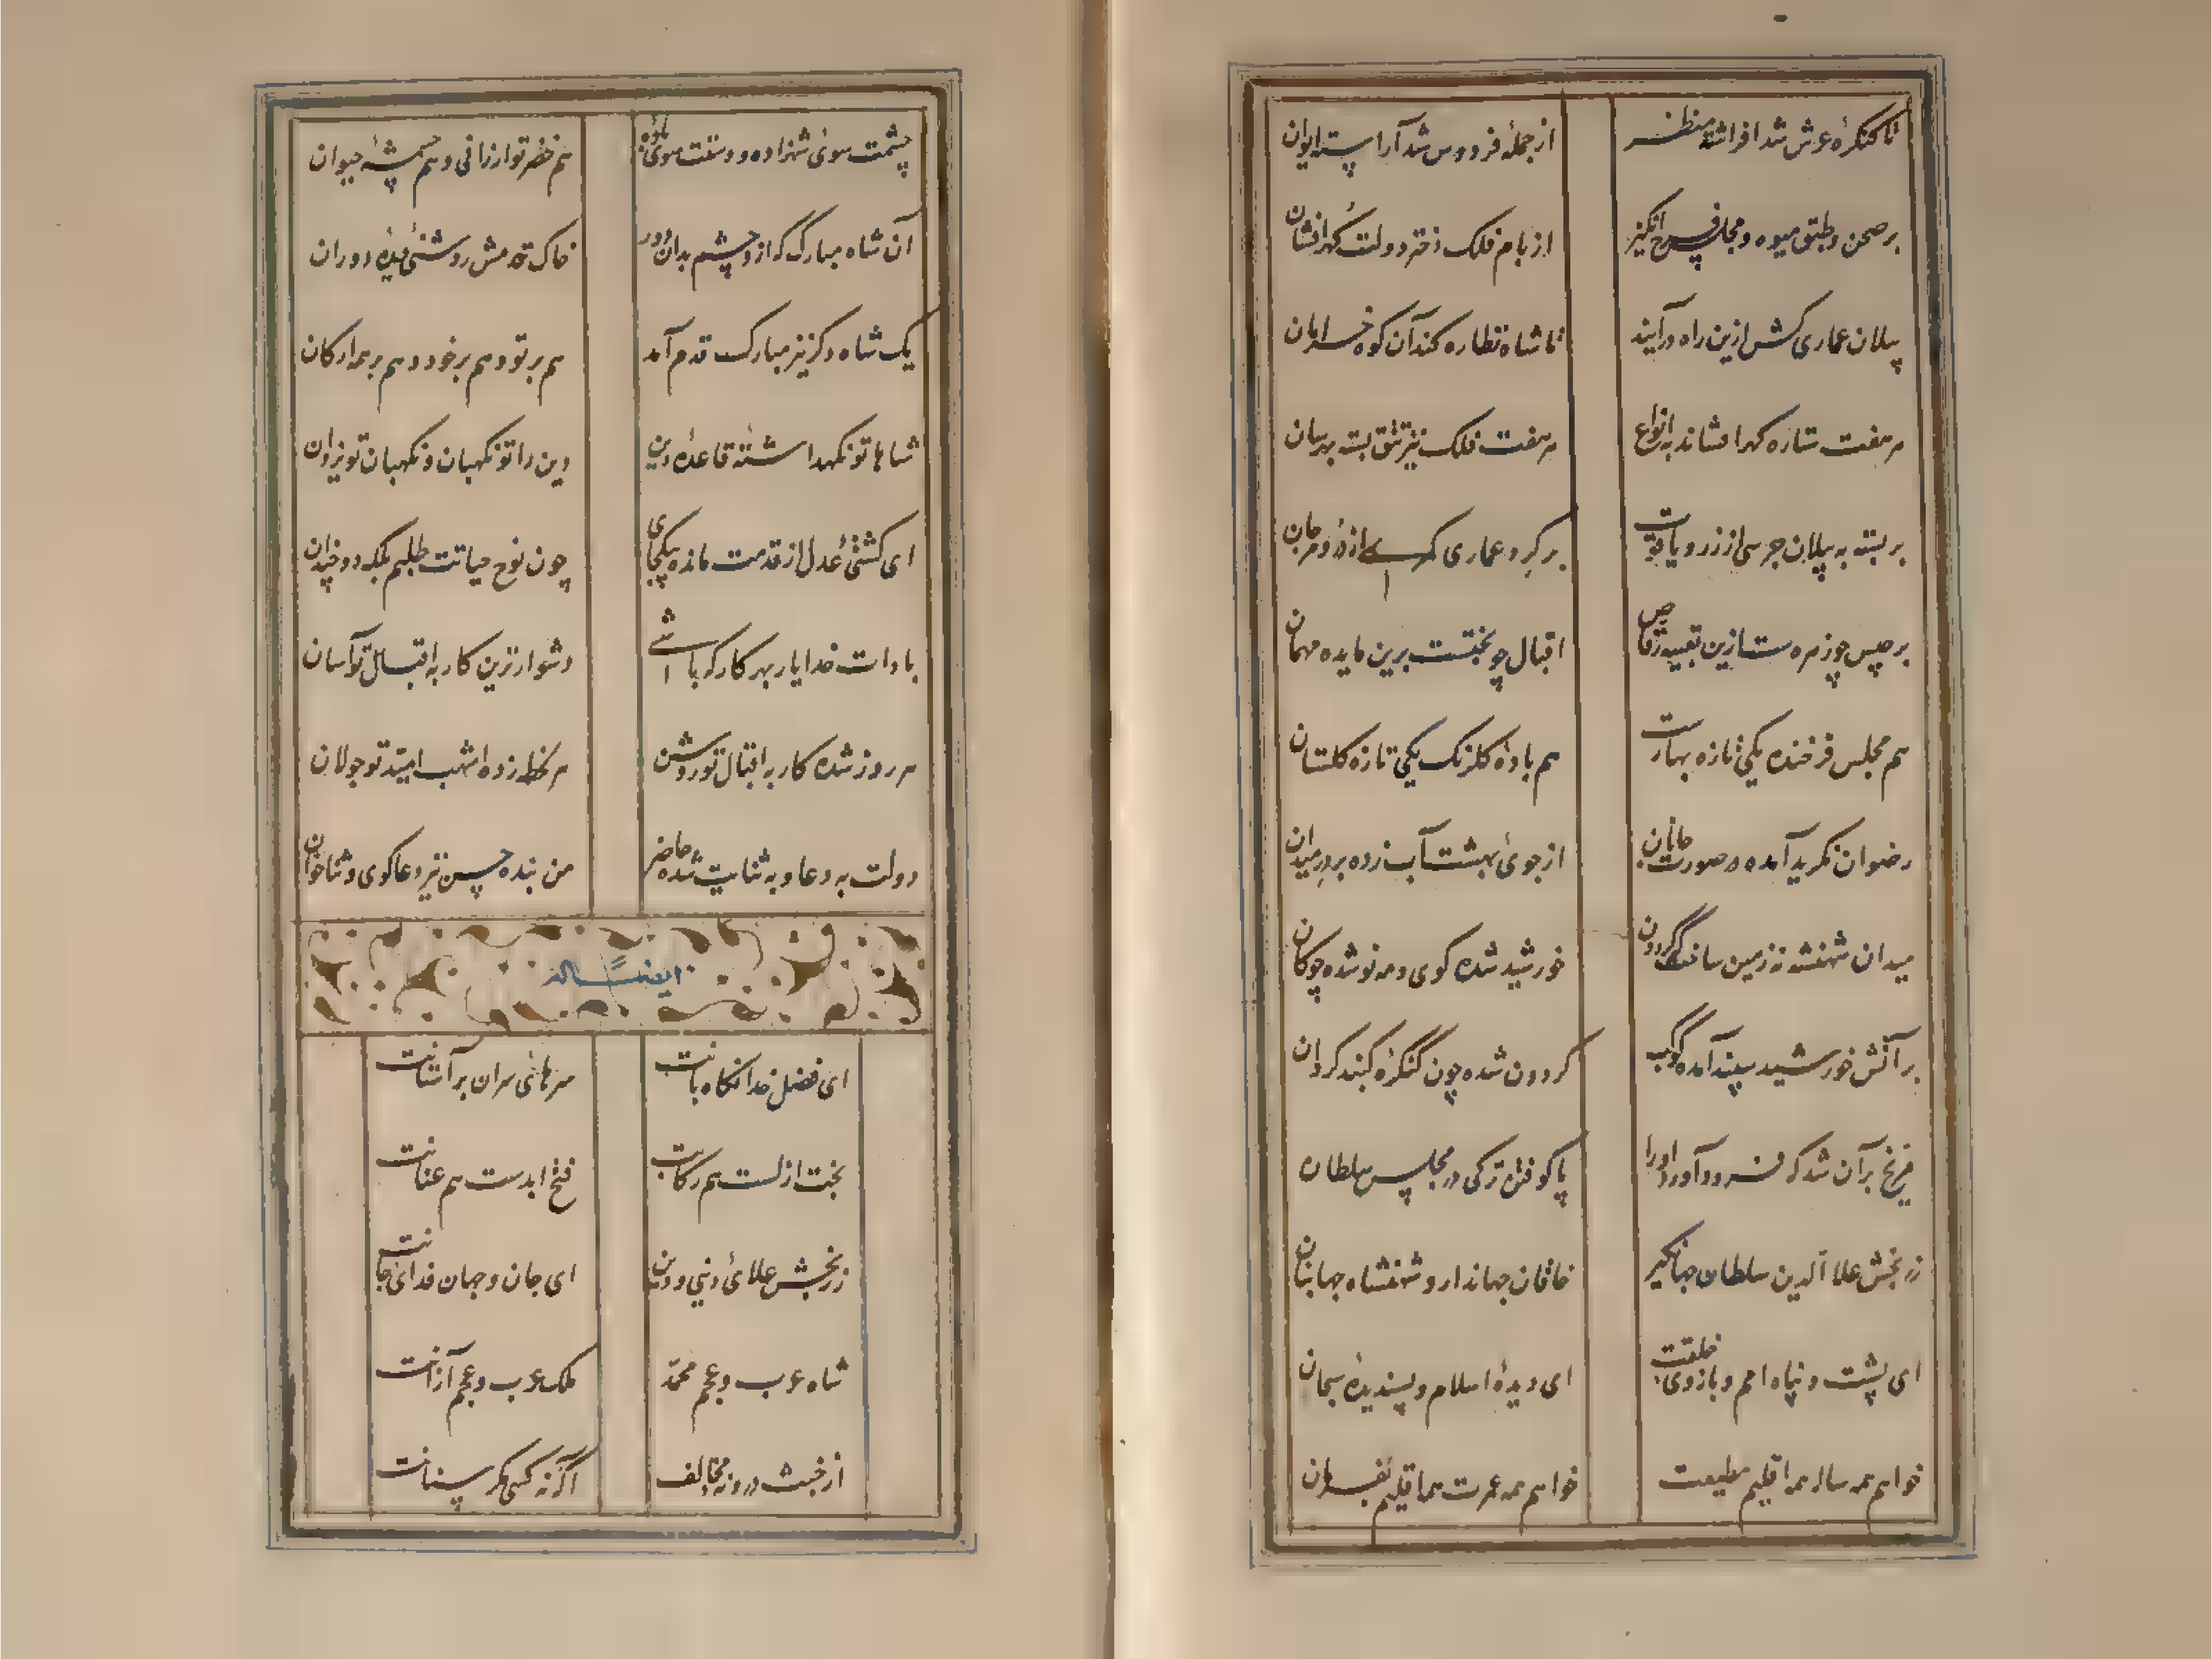 تا کنگرهٔ عرش شد افراشته منظر از جملهٔ فردوس شد آراسته ایوان
بر صحن و طبق میوه و مجلس فرح انگیز از بام فلک دختر دولت گهر افشان
پیلان عماری کش ازین راه درآیند تا شاه نظاره کند آن کوه خرامان
هر هفت ستاره گهر افشاند بانواع هر هفت فلک نیز تتق بسته بهرسان
بر بسته به پیلان جرسی از زر و یاقوت بر کرد عماری از در و مرجان
برجیس چو زهره ست ازین تعبیه رقاص اقبال چو بختست برین مایده مهمان
هم مجلس فرخنده یکی تازه بهارست هم بادهٔ گلرنگ یکی تازه گلستان
رضوان نگرید آمده در صورت خانان از جوی بهشت آب زده بر در میدان
میدان شهنشه نه زمین ساخت گردون خورشید شده گوی و مه نو شده چوگان
بر آتش خورشید سپند آمده کوکب گردون شده چون کنگرهٔ گنبد گردان
مریخ بر آن شد که فرود آورد او را پا کوفتن ترکی در مجلس سلطان
زر بخش علاء الدین سلطان جهانگیر خاقان جهاندار و شهنشاه جهانبان
ای پشت و پناه امم و بازوی خلقت ای دیدهٔ اسلام و پسندیدهٔ سبحان
خواهم همه ساله همه اقلیم مطیعت خواهم همه عمرت همه اقلیم بفرمان
چشمت سوی شهزاده و دستت سوی باده هم خضر تو ارزانی و هم چشمهٔ حیوان
آن شاه مبارک که ازو چشم بدان دور خاک قدمش روشنی دیدهٔ دوران
یک شاه دگر نیز مبارک قدم آمد هم بر تو و هم بر خود و هم بر همه ارکان
شاها تو نگهداشته قاعدهٔ دین دین را تو نگهبان و نگهبان تو یزدان
ای کشتی عدل از قدمت مانده بیکجای چون نوح حیاتت طلبم بلکه دو چندان
بادات خدا یار بهر کار که باشی دشوارترین کار به اقبال تو آسان
هر روز شده کار به اقبال تو روشن هر لحظه زده اشهب امید تو جولان
دولت به دعا و به ثنایت شده حاضر من بنده حسن نیز دعا گوی و ثنا خوان
ایضاً له
ای فضل خدا نگاه بانت سرهای سران بر آستانت
بخت ازلست هم رکابت فتح ابدست هم عنانت
زر بخش علای دنیی و دین ای جان و جهان فدای جانت
شاه عرب و عجم محمد ملک عرب و عجم از آنت
از خبث درونهٔ مخالف آگه نه کسی مگر سنانت